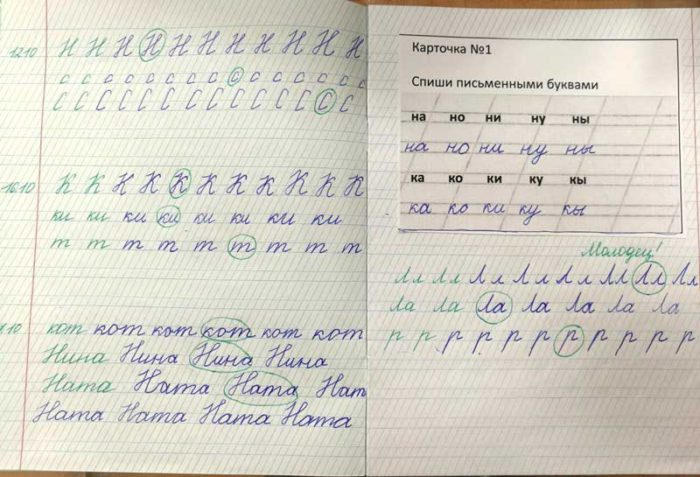 12.10 Н Н Н Н Н Н Н Н Н Н Н
с с с с с с с с с с с с с с
С С С С С С С С С С С С С С
16.10 К К К К К К К К К К К
ки ки ки ки ки ки ки ки
т т т т т т т т т
.10 кот кот кот кот кот кот
Нина Нина Нина Нина
Ната Ната Ната Нат
Ната Ната Ната Ната
Карточка №1
Спиши письменными буквами
на но ни ну ны
на но ни ну ны
ка ко ки ку кы
ка ко ки ку кы
Молодец!
Лл Лл Лл Лл Лл Лл Лл Лл
Ла Ла Ла Ла Ла Ла Ла
р р р р р р р р р р р